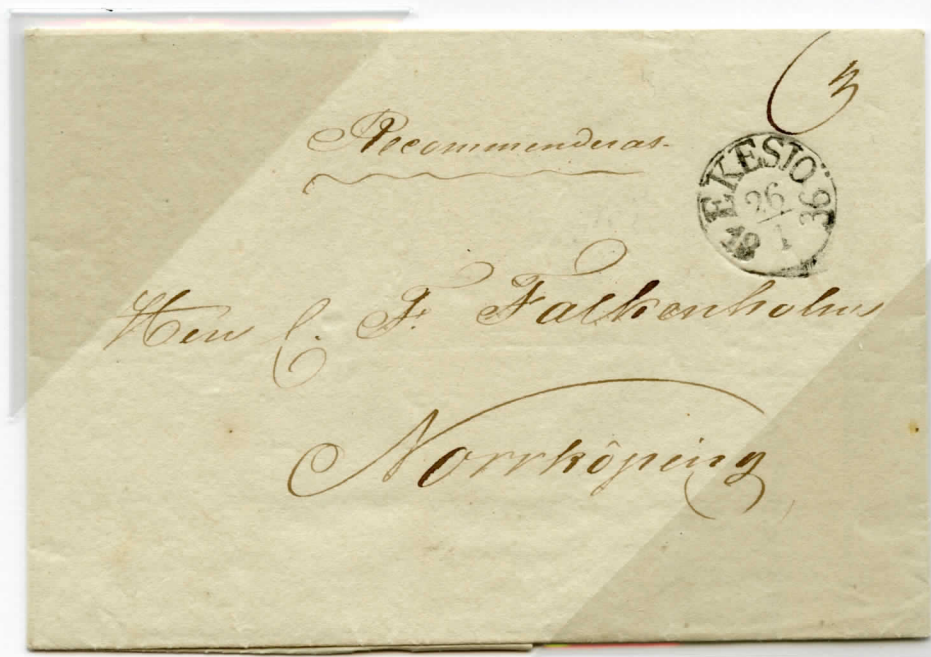 3
Recommenderas.
EKESIÖ
26
1
1836
Herr C. F. Falkenholm
Norrköping